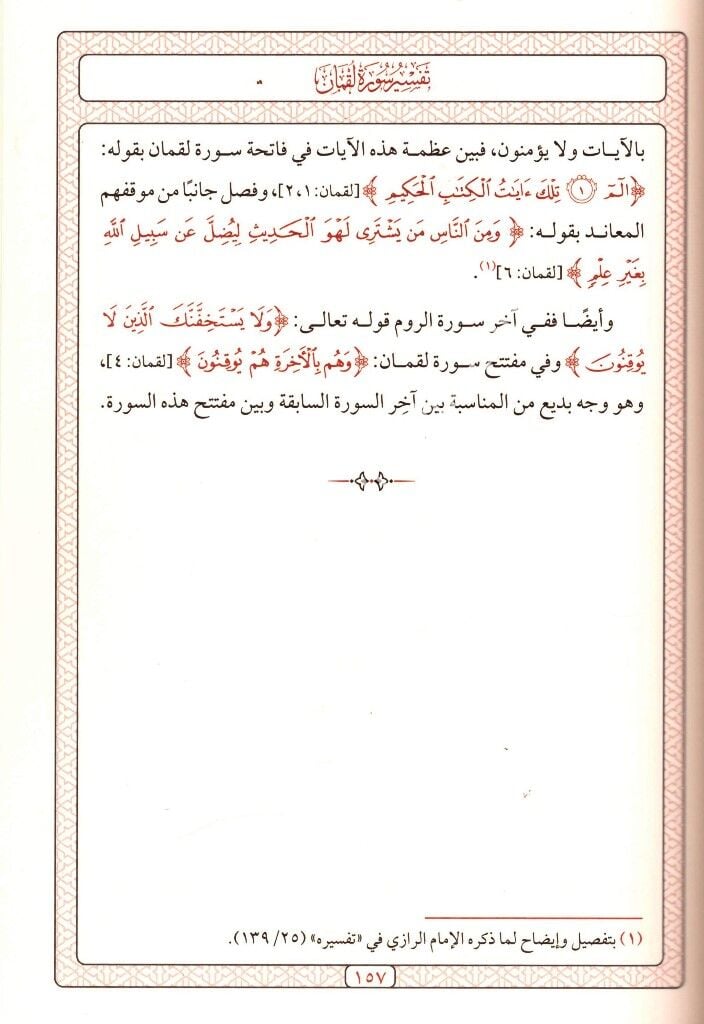 تَفْسِيرُ سُورَةِ لُقْمَان
بالآيـات ولا يؤمنون، فبين عظمـة هذه الآيات في فاتحة سـورة لقمان بقوله:
﴿الٓمٓ ۝١ تِلْكَ ءَايَٰتُ ٱلْكِتَٰبِ ٱلْحَكِيمِ﴾ [لقمان: ١، ٢]، وفصل جانبًا من موقفهم
المعانـد بقولـه: ﴿وَمِنَ ٱلنَّاسِ مَن يَشْتَرِى لَهْوَ ٱلْحَدِيثِ لِيُضِلَّ عَن سَبِيلِ ٱللَّهِ
بِغَيْرِ عِلْمٍ﴾ [لقمان: ٦](١).
وأيضًـا ففـي آخر سـورة الروم قولـه تعالـى: ﴿وَلَا يَسْتَخِفَّنَّكَ ٱلَّذِينَ لَا
يُوقِنُونَ﴾ وفي مفتتح سـورة لقمـان: ﴿وَهُم بِٱلْأَخِرَةِ هُمْ يُوقِنُونَ﴾ [لقمان: ٤]،
وهو وجه بديع من المناسبة بين آخِر السورة السابقة وبين مفتتح هذه السورة.
(١) بتفصيل وإيضاح لما ذكره الإمام الرازي في «تفسيره» (٢٥/ ١٣٩).
١٥٧